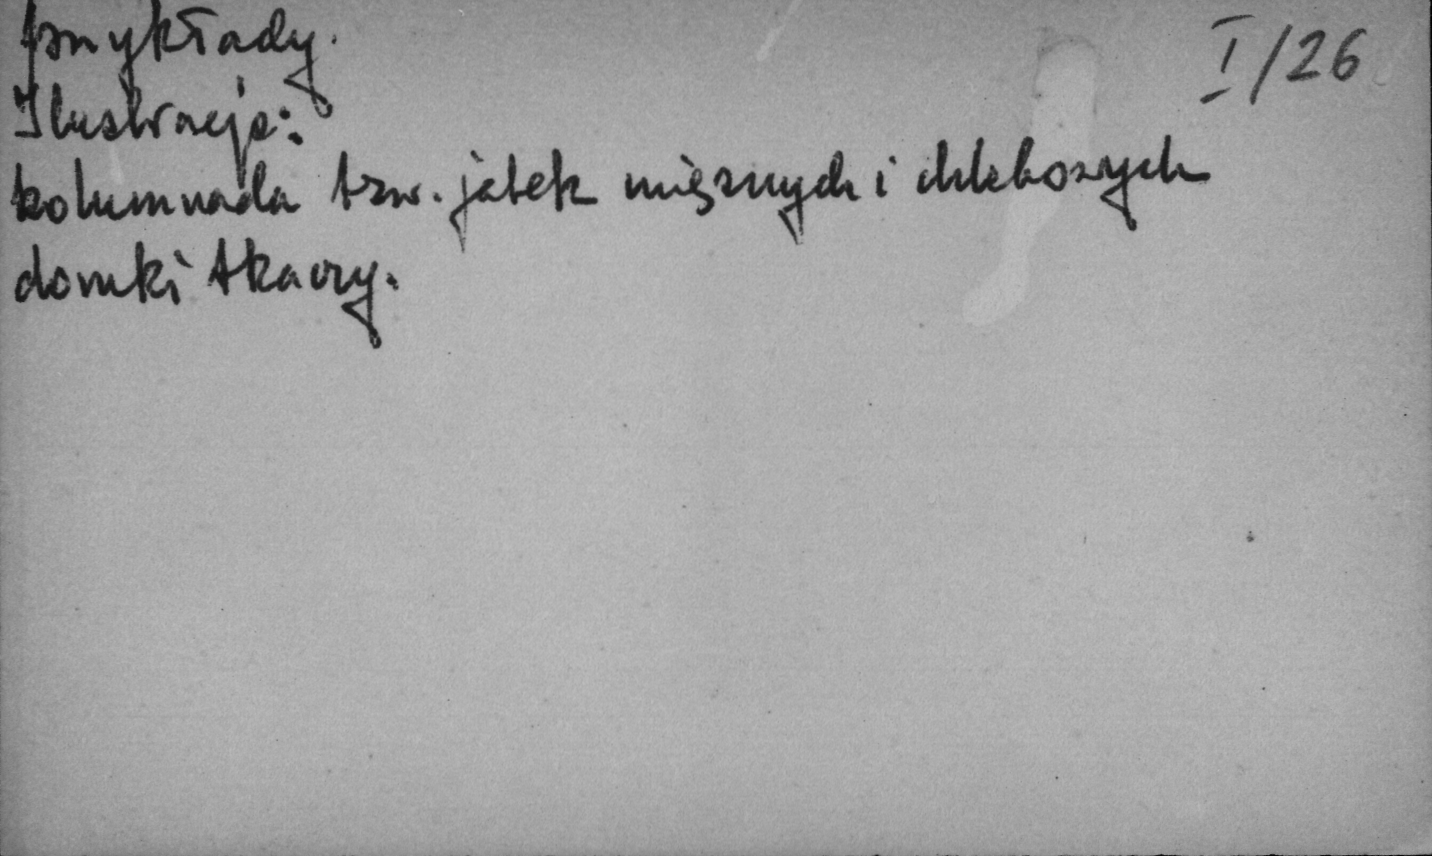 przykłady.
I/26
Ilustracja:
kolumnada tzw. jatek mięsnych i chlebowych
domki tkaczy.